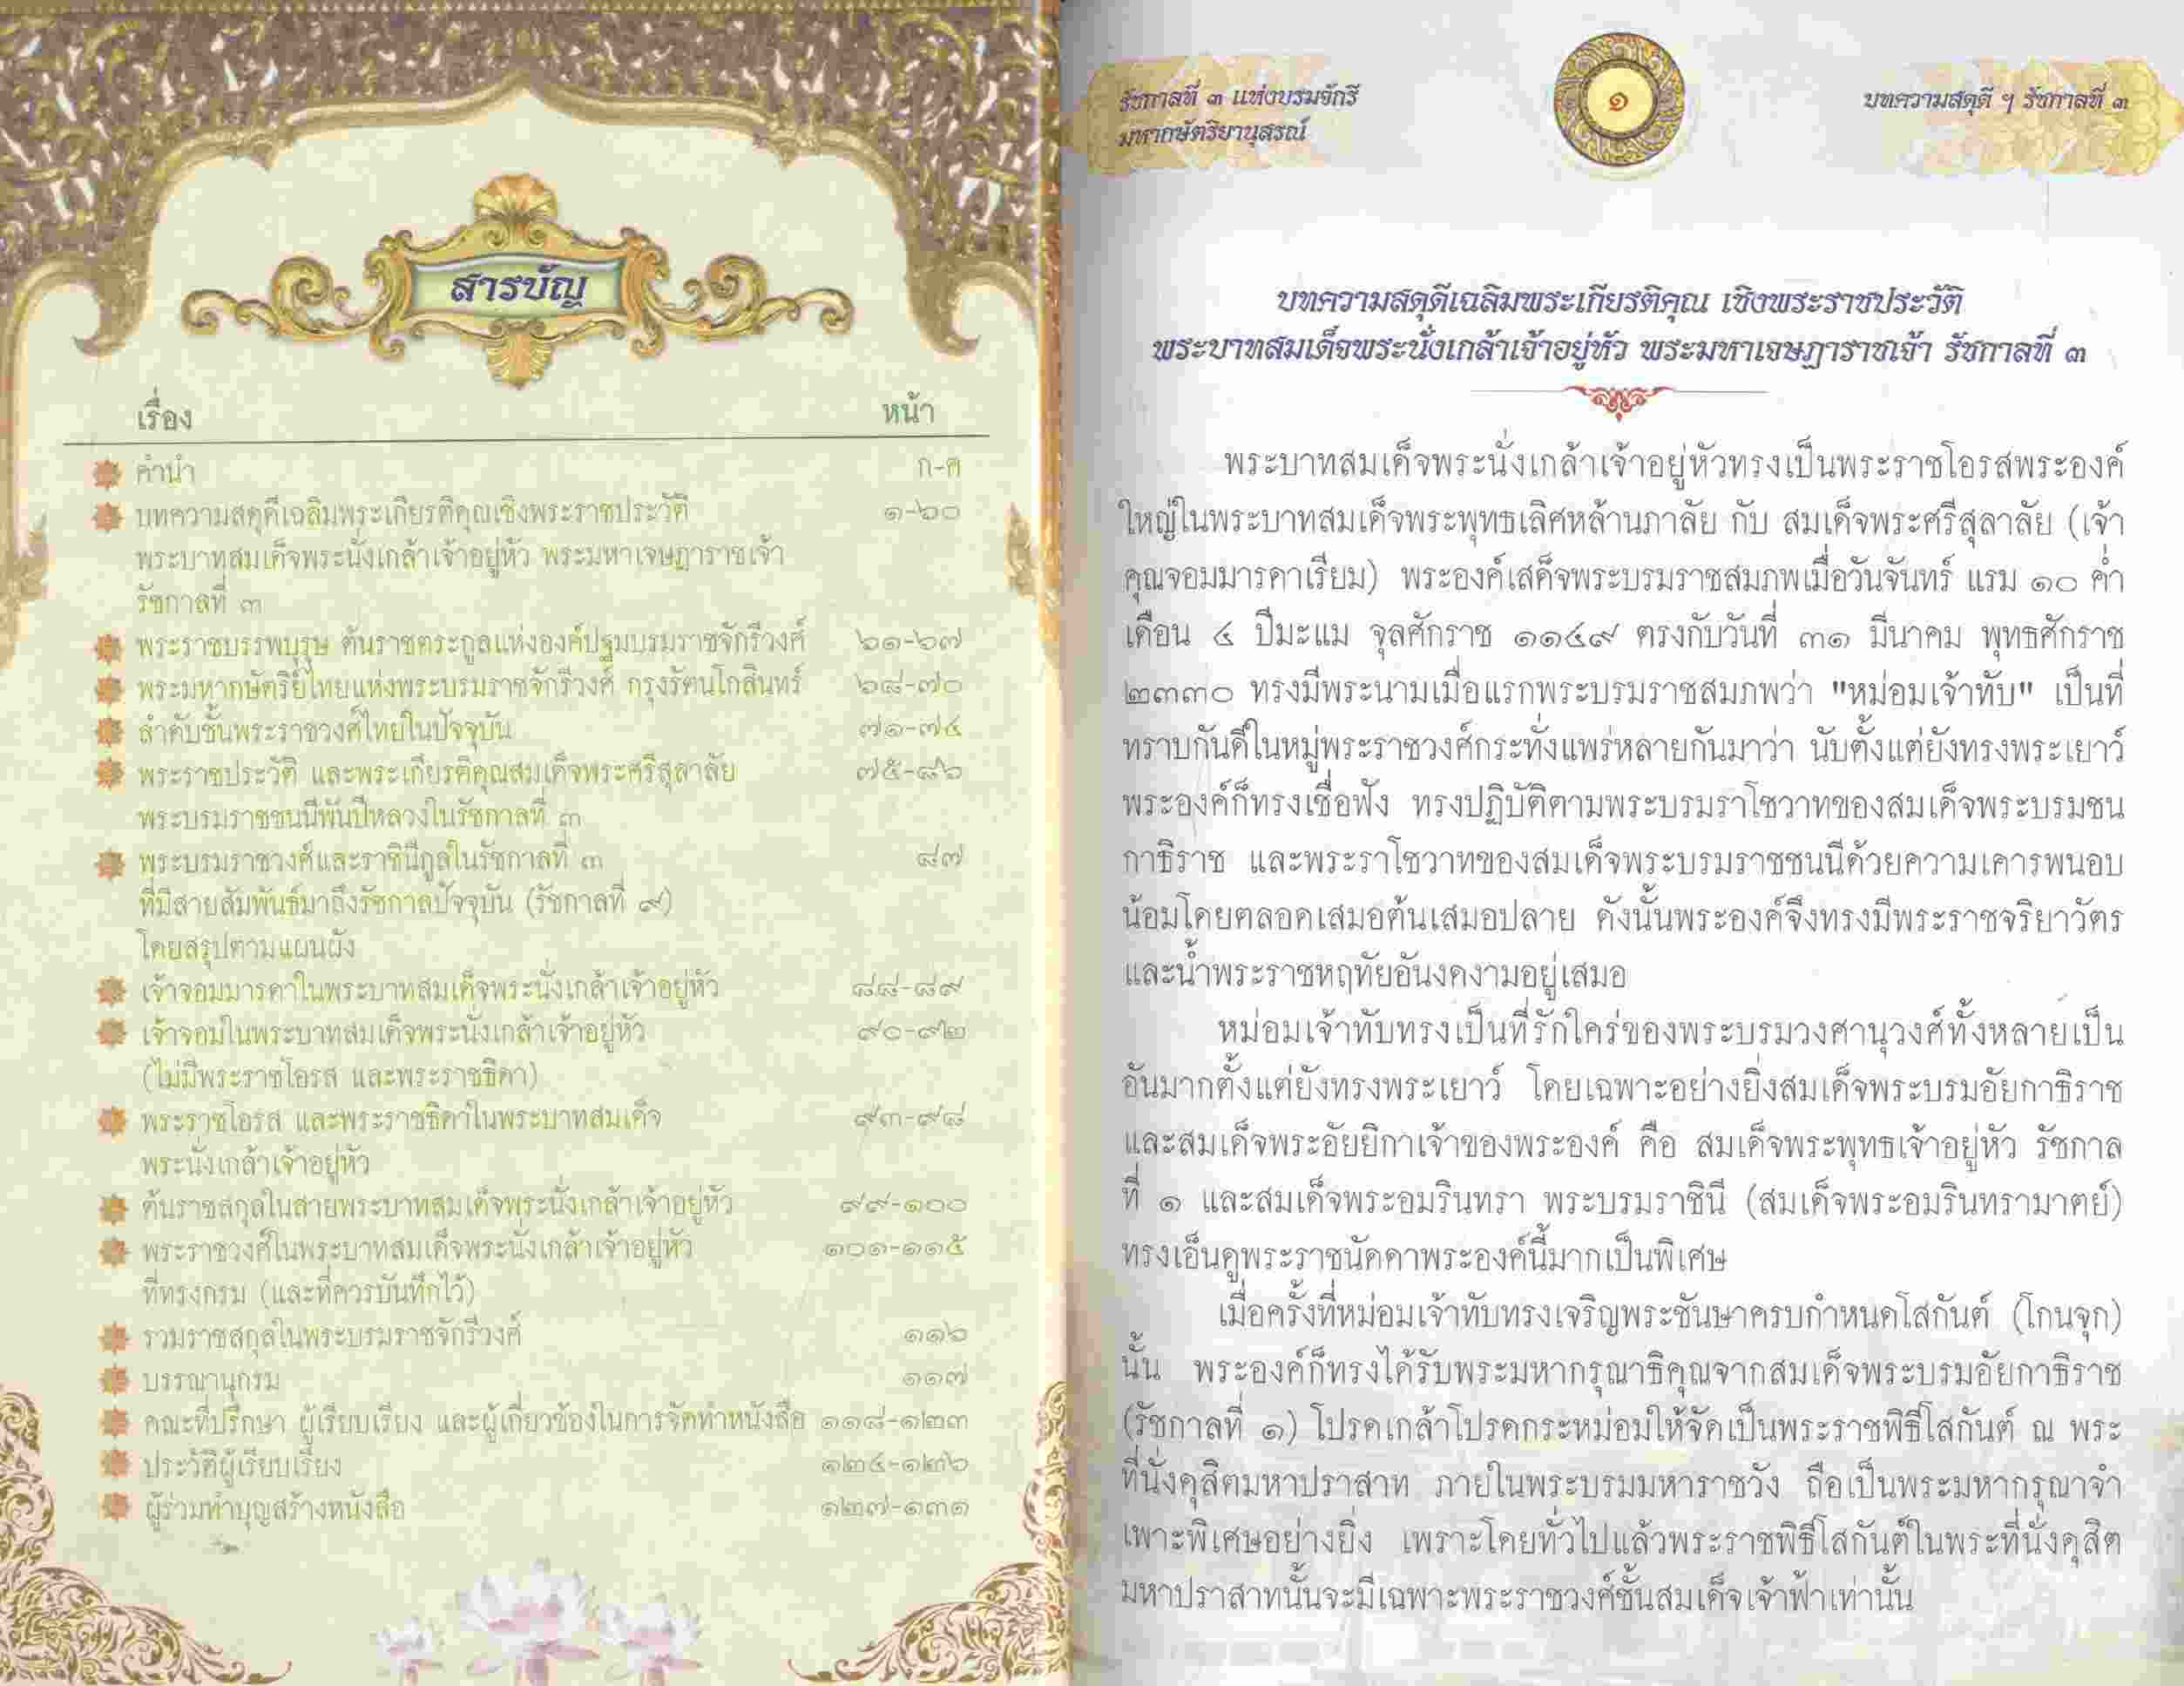 สารบัญ
เรื่อง หน้า
คำนำ ก-ค
บทความสดุดีเฉลิมพระเกียรติคุณเชิงพระราชประวัติ ๑-๖๐
พระบาทสมเด็จพระนั่งเกล้าเจ้าอยู่หัว พระมหาเจษฎาราชเจ้า
รัชกาลที่ ๓
พระราชบรรพบุรุษ ต้นราชตระกูลแห่งองค์ปฐมบรมราชจักรีวงศ์ ๖๑-๖๗
พระมหากษัตริย์ไทยแห่งพระบรมราชจักรีวงศ์ กรุงรัตนโกสินทร์ ๖๘-๗๐
ลำดับชั้นพระราชวงศ์ไทยในปัจจุบัน ๗๑-๗๔
พระราชประวัติ และพระเกียรติคุณสมเด็จพระศรีสุลาลัย ๗๕-๘๖
พระบรมราชชนนีพันปีหลวงในรัชกาลที่ ๓
พระบรมราชวงศ์และราชินีกูลในรัชกาลที่ ๓ ๘๗
ที่มีสายสัมพันธ์มาถึงรัชกาลปัจจุบัน (รัชกาลที่ ๙)
โดยสรุปตามแผนผัง
เจ้าจอมมารดาในพระบาทสมเด็จพระนั่งเกล้าเจ้าอยู่หัว ๘๘-๘๙
เจ้าจอมในพระบาทสมเด็จพระนั่งเกล้าเจ้าอยู่หัว ๙๐-๙๒
(ไม่มีพระราชโอรส และพระราชธิดา)
พระราชโอรส และพระราชธิดาในพระบาทสมเด็จ ๙๓-๙๘
พระนั่งเกล้าเจ้าอยู่หัว
ต้นราชสกุลในสายพระบาทสมเด็จพระนั่งเกล้าเจ้าอยู่หัว ๙๙-๑๐๐
พระราชวงศ์ในพระบาทสมเด็จพระนั่งเกล้าเจ้าอยู่หัว ๑๐๑-๑๑๕
ที่ทรงกรม (และที่ควรบันทึกไว้)
รวมราชสกุลในพระบรมราชจักรีวงศ์ ๑๑๖
บรรณานุกรม ๑๑๗
คณะที่ปรึกษา ผู้เรียบเรียง และผู้เกี่ยวข้องในการจัดทำหนังสือ ๑๑๘-๑๒๓
ประวัติผู้เรียบเรียง ๑๒๔-๑๒๖
ผู้ร่วมทำบุญสร้างหนังสือ ๑๒๗-๑๓๑
รัชกาลที่ ๓ แห่งบรมจักรี
มหากษัตริยานุสรณ์
๑
บทความสดุดี ฯ รัชกาลที่ ๓
บทความสดุดีเฉลิมพระเกียรติคุณ เชิงพระราชประวัติ
พระบาทสมเด็จพระนั่งเกล้าเจ้าอยู่หัว พระมหาเจษฎาราชเจ้า รัชกาลที่ ๓
พระบาทสมเด็จพระนั่งเกล้าเจ้าอยู่หัวทรงเป็นพระราชโอรสพระองค์
ใหญ่ในพระบาทสมเด็จพระพุทธเลิศหล้านภาลัย กับ สมเด็จพระศรีสุลาลัย (เจ้า
คุณจอมมารดาเรียม) พระองค์เสด็จพระบรมราชสมภพเมื่อวันจันทร์ แรม ๑๐ ค่ำ
เดือน ๔ ปีมะแม จุลศักราช ๑๑๔๙ ตรงกับวันที่ ๓๑ มีนาคม พุทธศักราช
๒๓๓๐ ทรงมีพระนามเมื่อแรกพระบรมราชสมภพว่า "หม่อมเจ้าทับ" เป็นที่
ทราบกันดีในหมู่พระราชวงศ์กระทั่งแพร่หลายกันมาว่า นับตั้งแต่ยังทรงพระเยาว์
พระองค์ก็ทรงเชื่อฟัง ทรงปฏิบัติตามพระบรมราโชวาทของสมเด็จพระบรมชน
กาธิราช และพระราโชวาทของสมเด็จพระบรมราชชนนีด้วยความเคารพนอบ
น้อมโดยตลอดเสมอต้นเสมอปลาย ดังนั้นพระองค์จึงทรงมีพระราชจริยาวัตร
และน้ำพระราชหฤทัยอันงดงามอยู่เสมอ
หม่อมเจ้าทับทรงเป็นที่รักใคร่ของพระบรมวงศานุวงศ์ทั้งหลายเป็น
อันมากตั้งแต่ยังทรงพระเยาว์ โดยเฉพาะอย่างยิ่งสมเด็จพระบรมอัยกาธิราช
และสมเด็จพระอัยยิกาเจ้าของพระองค์ คือ สมเด็จพระพุทธเจ้าอยู่หัว รัชกาล
ที่ ๑ และสมเด็จพระอมรินทรา พระบรมราชินี (สมเด็จพระอมรินทรามาตย์)
ทรงเอ็นดูพระราชนัดดาพระองค์นี้มากเป็นพิเศษ
เมื่อครั้งที่หม่อมเจ้าทับทรงเจริญพระชันษาครบกำหนดโสกันต์ (โกนจุก)
นั้น พระองค์ก็ทรงได้รับพระมหากรุณาธิคุณจากสมเด็จพระบรมอัยกาธิราช
(รัชกาลที่ ๑) โปรดเกล้าโปรดกระหม่อมให้จัดเป็นพระราชพิธีโสกันต์ ณ พระ
ที่นั่งดุสิตมหาปราสาท ภายในพระบรมมหาราชวัง ถือเป็นพระมหากรุณาจำ
เพาะพิเศษอย่างยิ่ง เพราะโดยทั่วไปแล้วพระราชพิธีโสกันต์ในพระที่นั่งดุสิต
มหาปราสาทนั้นจะมีเฉพาะพระราชวงศ์ชั้นสมเด็จเจ้าฟ้าเท่านั้น